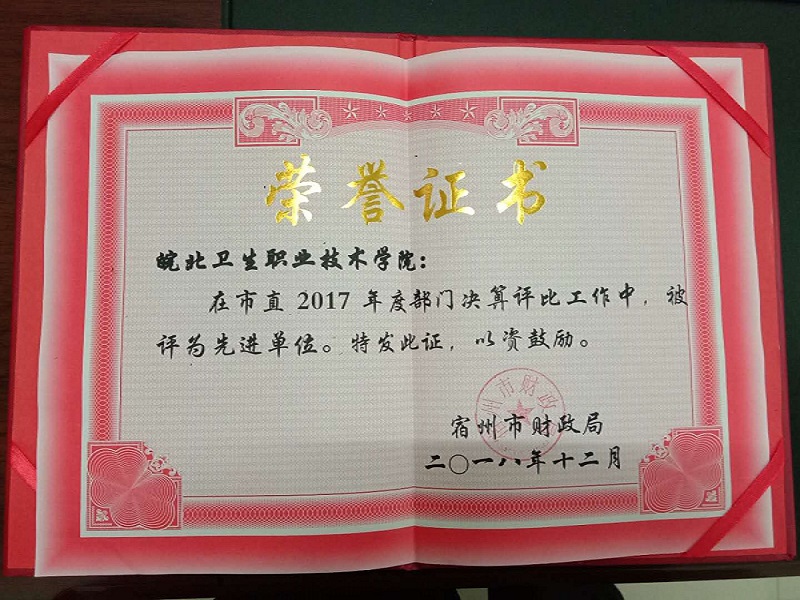 荣誉证书
皖北卫生职业技术学院：
在市直 2017 年度部门决算评比工作中，被
评为先进单位。特发此证，以资鼓励。
宿州市财政局
二〇一八年十二月